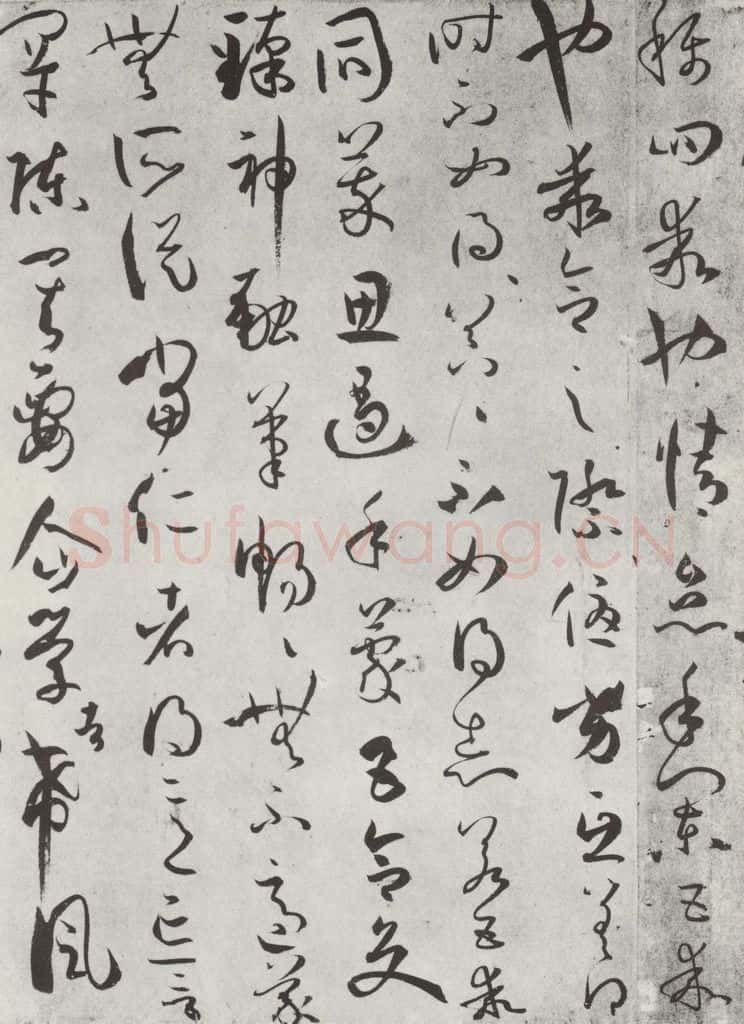 稱四乖也情怠手闌五乖
也乖合之際優劣互差得
時不如得〻器〻不如得志若五乖
同萃思遏手蒙五合交
臻神融筆暢〻無不適蒙
無所從當仁者得意忘言
罕陳其要企學者希風
Shufawang.CN